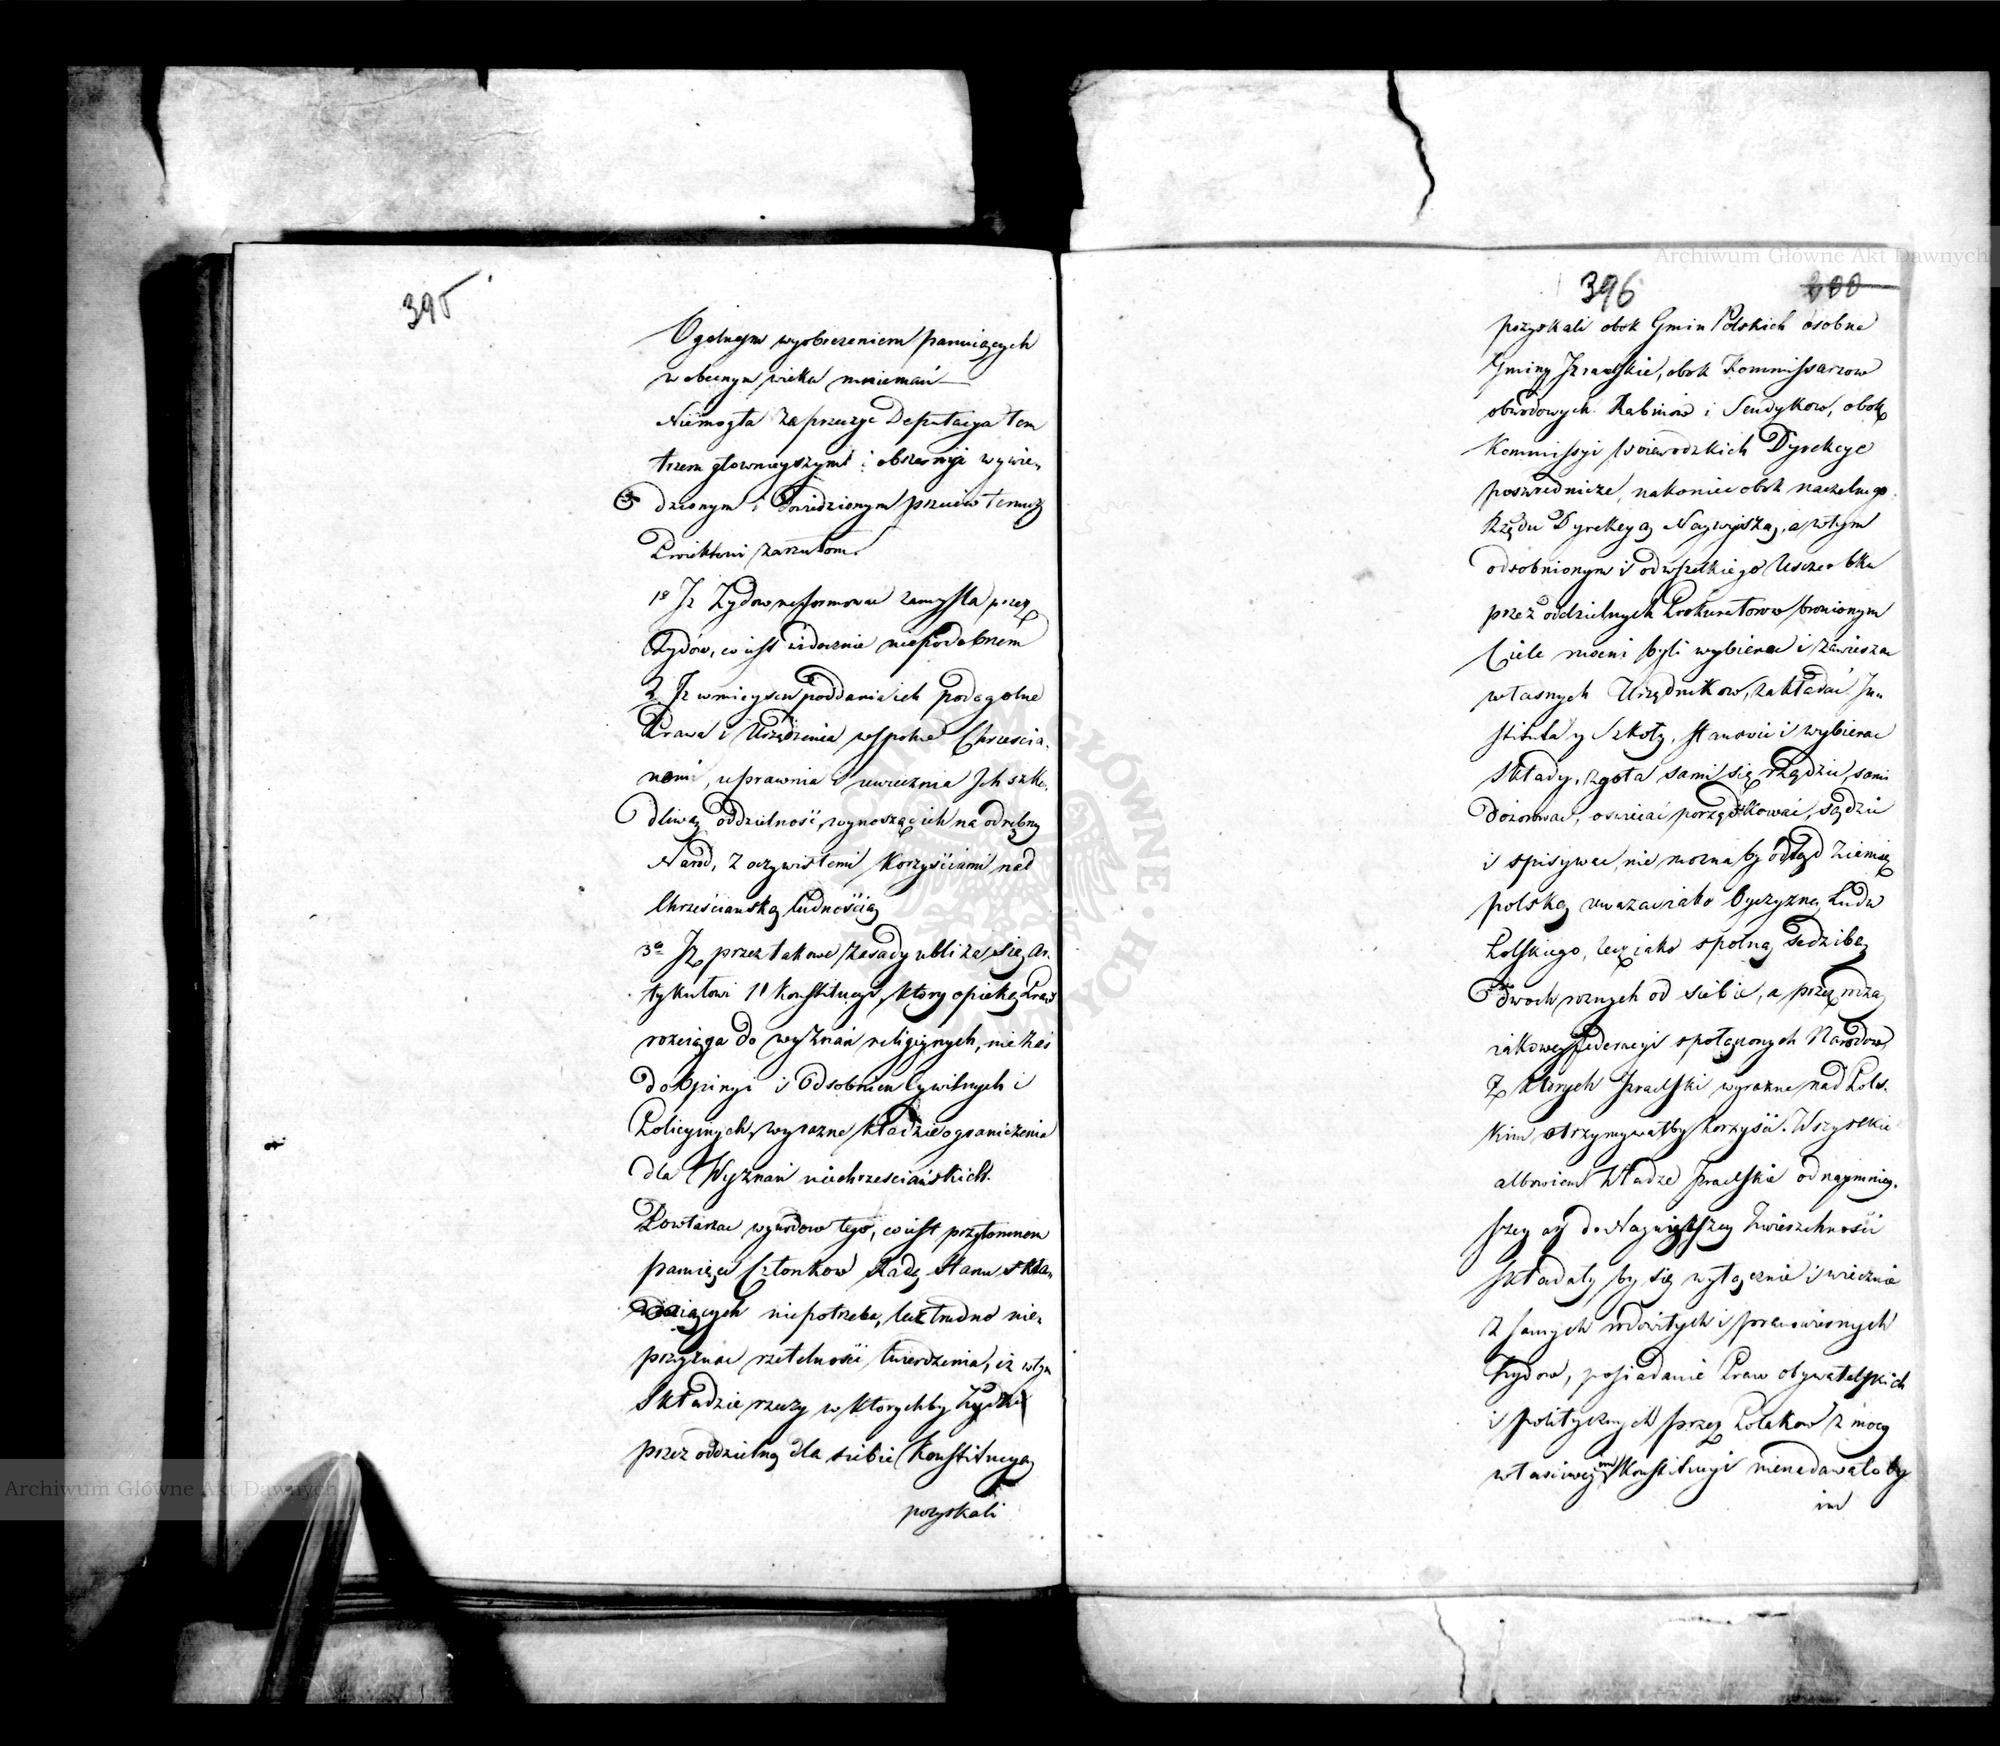 395
Ogolnym wyobrażeniem panuiących
w obecnym wieku mniemań
Niemogła zaprzeczyć Deputacya tem
trzem głownieyszym i obszerniey wywie-
dzionym i dowiedzionym przeciw temuż
Proiektowi zarzutom.
1º Iż Żydow reformować zamyśla przez
Żydów, co iest widocznie niepodobnem
2 Iż w mieysce poddania ich pod ogolne
Prawa i Urządzenia wespołne Chrześcia-
nami, uprawnia i uwiecznia Ich szko-
dliwą oddzielność, wynosząc ich na odrębny
Naród, z oczywistemi korzyściami nad
Chrześciańską ludnością
3º Iż przez takowe zasady ubliża się Ar-
tykułowi 11 Konstitucyi, ktory opiekę Praw
rozciąga do wyznań religiynych, nie zaś
do Opinyi i Odsobnień Cywilnych i
Policyinych, wyrazne kładzie ograniczenia
dla Wyznań niechrzesciańskich.
Powtarzac wywodow tego, co iest przytomnem
pamięci Członkow Rady Stanu skła-
daiących niepotrzeba, lecz trudno nie-
przyznac rzetelności twierdzenia, iż w tym
Składzie rzeczy w ktorychby Żydzi
przez oddzielną dla siebie Konstitucyą
pozyskali
396 200
pozyskali obok Gmin Polskich osobne
Gminy Izraelskie, obok Kommissarzow
obwodowych Rabinow i Sendykow, obok
Kommissyi Woiewodzkich Dyrekcye
pośrednicze, nakoniec obok naczelnego
Rządu Dyrekcyą Naywyższą, a w tym
odsobnionym i od wszelkiego Uszczerbku
przez oddzielnych Prokuratorow bronionym
Ciele mocni byli wybierac i zawieszac
własnych Urzędnikow, zakładać In-
stituta y Szkoły, stanowic i wybierac
składy, zgoła sami się rządzić, sami
dozorować, oswiecać porządkować, sądzic
i spisywac, nie mozna by odtąd Ziemię
polską uwazac iako Oyczyznę Ludu
Polskiego, lecz iako spolną siedzibę
dwoch roznych od siebie, a przez
iakowey federacyi społączonych Narodow,
z ktorych Izraelski wyrazne nad Pols-
kim otrzymywałby korzyści. Wszystkie
albowiem Władze Izraelskie od naymniey-
szey az do Naywyższey Zwierzchności
składały by się wyłącznie i wiecznie
z samych rodowitych i prawowiernych
Żydow, posiadanie Praw obywatelskich
i politycznych przez Polakow z mocy
własciwey im Konstitucyi nienadawałoby
im